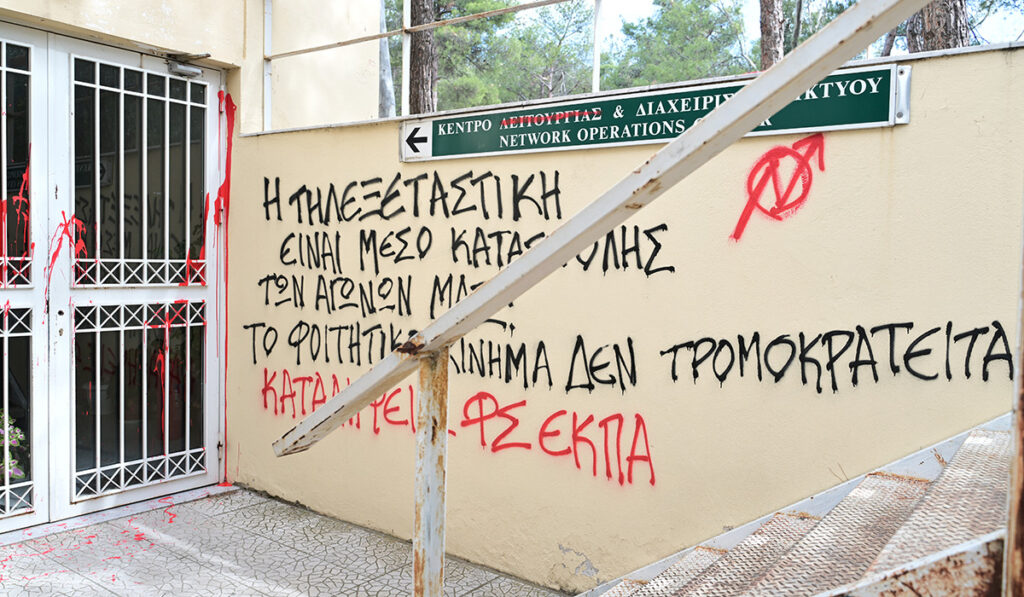 ΚΕΝΤΡΟ ΛΕΙΤΟΥΡΓΙΑΣ & ΔΙΑΧΕΙΡΙΣ ΙΚΤΥΟΥ
NETWORK OPERATIONS
Η ΤΗΛΕΞΕΤΑΣΤΙΚΗ
ΕΙΝΑΙ ΜΕΣΟ ΚΑΤΑΣ ΟΛΗΣ
ΤΩΝ ΑΓΩΝΩΝ ΜΑΣ
ΤΟ ΦΟΙΤΗΤΙΚΟ ΚΙΝΗΜΑ ΔΕΝ ΤΡΟΜΟΚΡΑΤΕΙΤΑ
ΚΑΤΑΛ ΨΕΙΣ ΦΣ ΕΚΠΑ